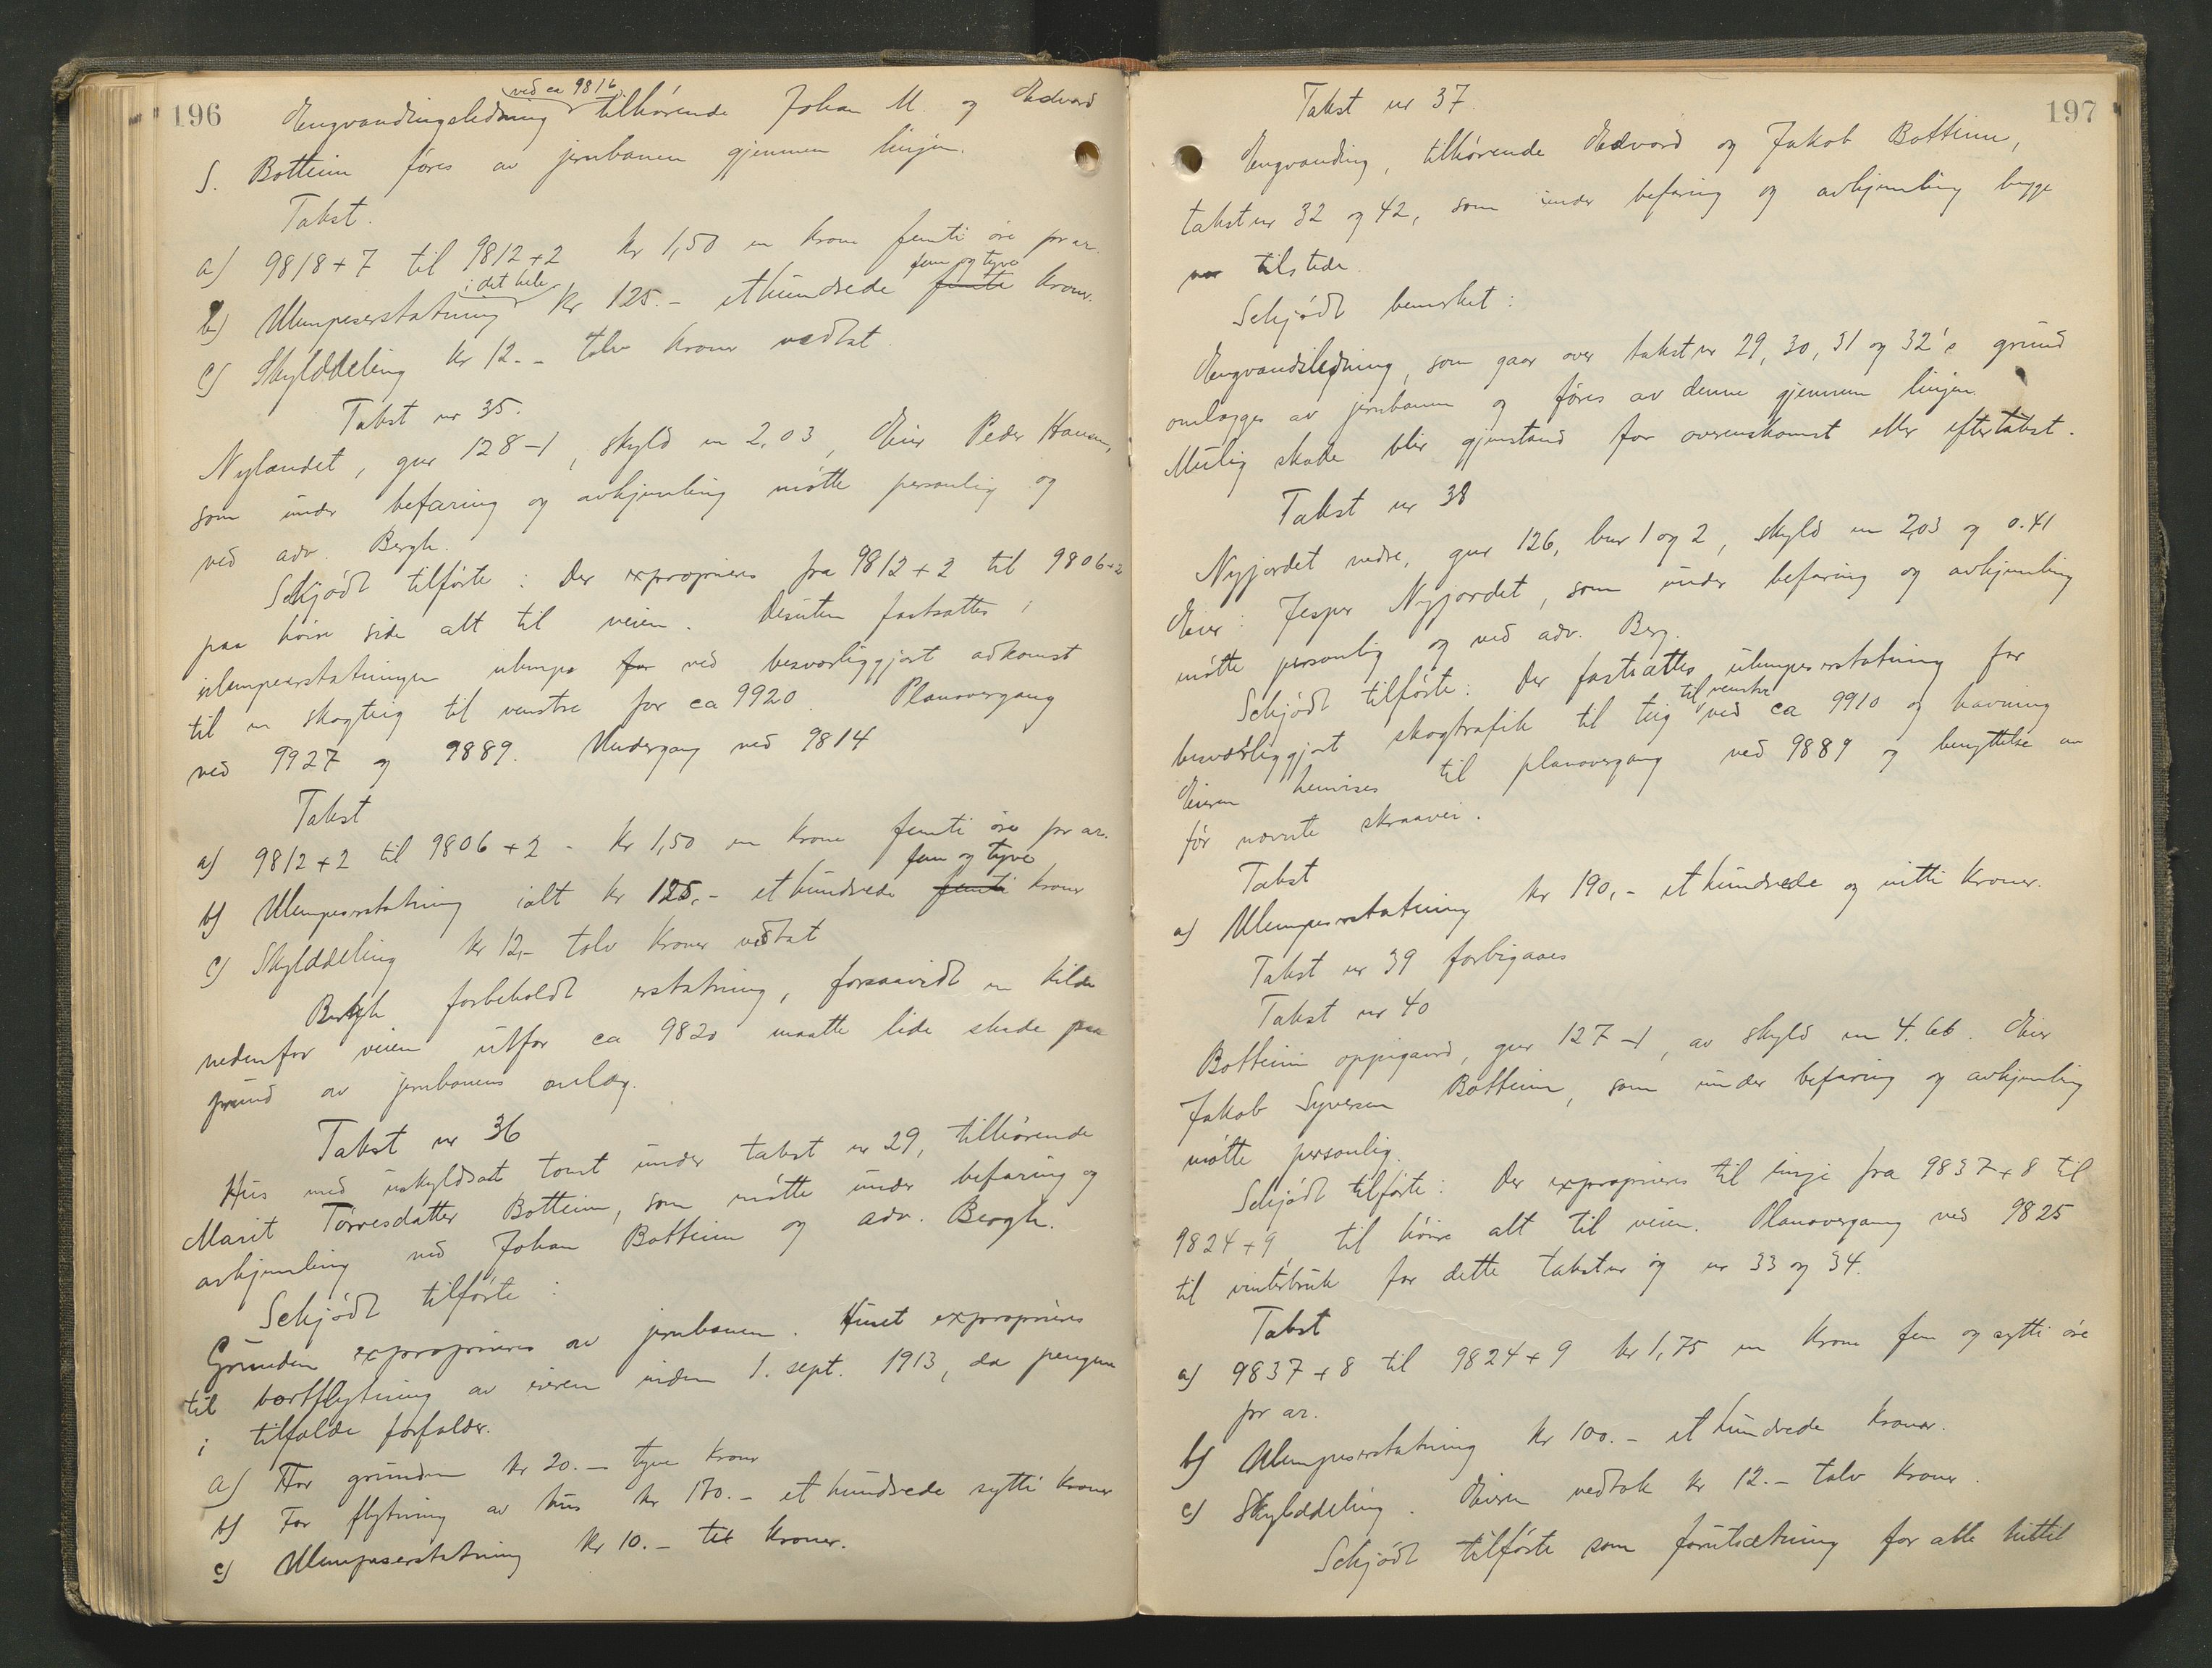 196
ved ca 9816
Engvandingsledning tilhørende Johan M. og Edvard
S. Bottheim føres av jernbanen gjennem linjen.
Takst.
a) 9818+7 til 9812+2 kr 1,50 en krone femti øre pr ar.
i det hele fem og tyve
b) Ulempeserstatning kr 125.- et hundrede femti kroner.
c) Skylddeling kr 12.- tolv kroner vedtat
Takst nr 35.
Nylandet, gnr 128-1, skyld m 2,03, Eier Peder Hansen,
som under befaring og avhjemling møtte personlig og
ved adv. Bergh.
Schjødt tilførte: Der exproprieres fra 9812+2 til 9806+2
paa høire side alt til veien. Desuten fastsættes i
ulempeerstatningen ulempe for ved besværliggjort adkomst
til en skogteig til venstre for ca 9920. Planovergang
ved 9927 og 9889. Undergang ved 9814
Takst
a) 9812+2 til 9806+2 - kr 1,50 en krone femti øre pr ar.
fem og tyve
b) Ulempeserstatning ialt kr 125,- et hundrede femti kroner
c) Skylddeling kr 12,- tolv kroner vedtat
Bergh forbeholdt erstatning, forsaavidt en kilde
nedenfor veien utfor ca 9820 maatte lide skade paa
grund av jernbanens anlæg.
Takst nr 36
Hus med uskyldsat tomt under takst nr 29, tilhørende
Marit Tørresdatter Bottheim, som møtte under befaring og
avhjemling ved Johan Bottheim og adv. Bergh.
Schjødt tilførte:
Grunden exproprieres av jernbanen. Huset exproprieres
til bortflytning av eieren inden 1. sept. 1913, da pengene
i tilfælde forfalder.
a) For grunden kr 20.- tyve kroner
b) For flytning av hus kr 170.- et hundrede sytti kroner
c) Ulempeserstatning kr 10.- ti kroner.
197
Takst nr 37.
Engvanding, tilhørende Edvard og Jakob Bottheim,
takst nr 32 og 42, som under befaring og avhjemling begge
var tilstede.
Schjødt bemerket:
Engvandsledning, som gaar over takst nr 29, 30, 31 og 32's grund
omlægges av jernbanen og føres av denne gjennem linjen.
Mulig skade blir gjenstand for overenskomst eller eftertakst.
Takst nr 38
Nyjordet nedre, gnr 126, bnr 1 og 2, skyld m 2,03 og 0.41
Eier: Jesper Nyjordet, som under befaring og avhjemling
møtte personlig og ved adv. Berg.
Schjødt tilførte: Der fastsættes ulempeserstatning for
til venstre
besværliggjort skogtrafik til teig ved ca 9910 og havning
Eieren henvises til planovergang ved 9889 og benyttelse av
før nævnte skraavei.
Takst
a) Ulempeserstatning kr 190,- et hundrede og nitti kroner.
Takst nr 39 forbigaaes
Takst nr 40
Bottheim oppigaard, gnr 127-1, av skyld m 4.66. Eier
Jakob Syversen Bottheim, som under befaring og avhjemling
møtte personlig.
Schjødt tilførte: Der exproprieres til linje fra 9837+8 til
9824+9 til høire alt til veien. Planovergang ved 9825
til vinterbruk for dette takst nr og nr 33 og 34.
Takst
a) 9837+8 til 9824+9 kr 1,75 en krone fem og sytti øre
pr ar.
b) Ulempeserstatning kr 100.- et hundrede kroner.
c) Skylddeling. Eieren vedtok kr 12.- tolv kroner.
Schjødt tilførte som forutsætning for alle hittil